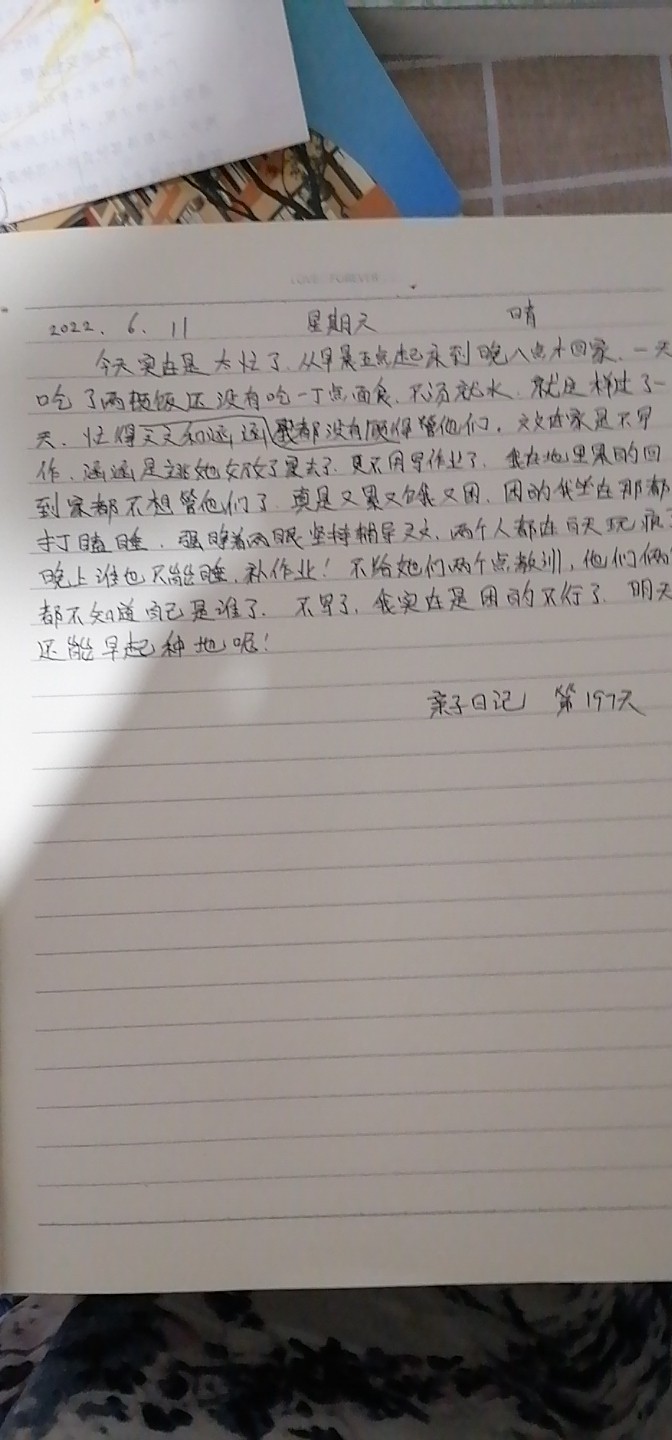 LOVE FOREVER
2022. 6. 11 星期天 晴
今天实在是太忙了，从早晨五点起床到晚八点才回家，一天
吃了两顿饭还没有吃一丁点面食，不汤就水，就这样过了一
天，忙得文文和涵涵我都没有顾得管他们，文文在家是不写
作，涵涵是跳她女放了夏去了，更不用写作业了，我在地里累的回
到家都不想管他们了，真是又累又饿又困，困的我坐在那都
打瞌睡，强睁着两眼坚持辅导文文，两个人都在白天玩疯了
晚上谁也不能睡，补作业！不给她们两个点教训，他们俩
都不知道自己是谁了，不写了，我实在是困的不行了，明天
还能早起种地呢！
亲子日记 第197天